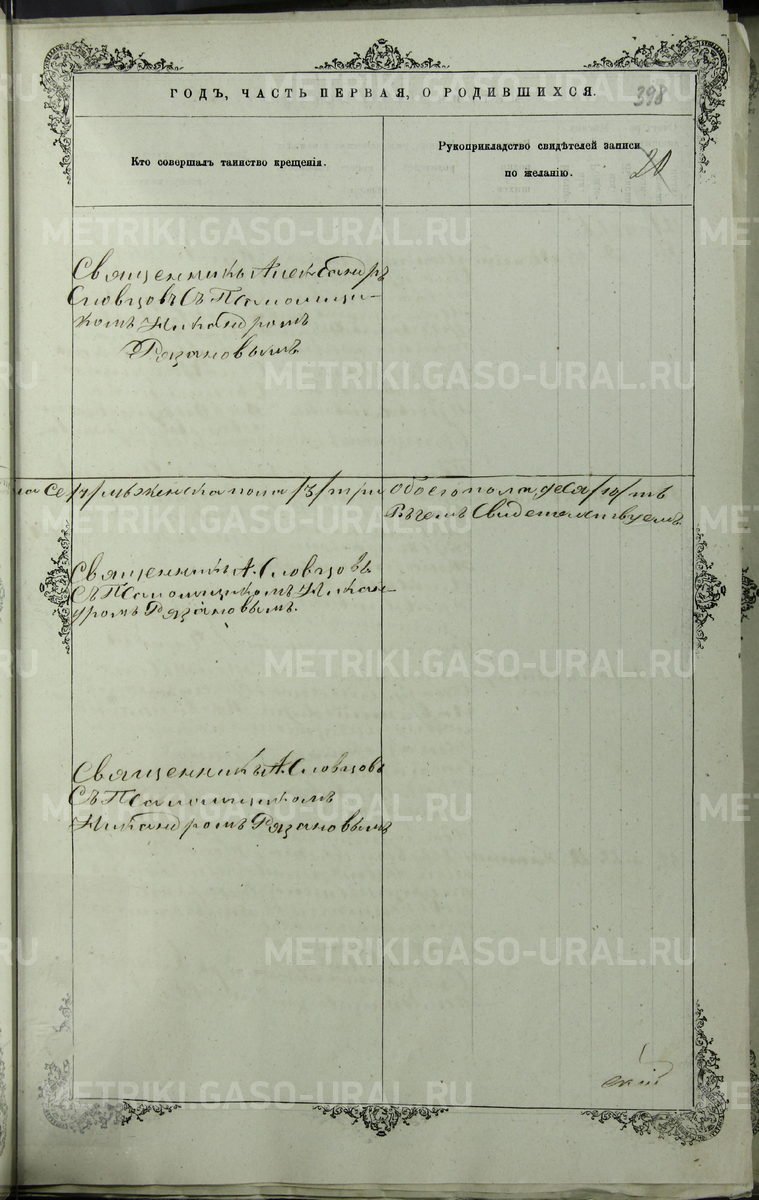 ГОДЪ, ЧАСТЬ ПЕРВАЯ, О РОДИВШИХСЯ.
398
Кто совершалъ таинство крещенія.
Рукоприкладство свидѣтелей записи
по желанію.
20
Священникъ Александръ
Словцовъ Съ Псаломщи-
комъ Никандромъ
Рязановымъ
се /7/ мь женска пола /3/ три обоего пола деся /10/ ть
Въ чемъ Свидетельствуемъ
Священникъ А. Словцовъ
Съ Псаломщикомъ Никан-
дромъ Рязановымъ.
Священникъ А. Словцовъ
Съ Псаломщикомъ
Никандромъ Рязановымъ
скій
METRIKI.GASO-URAL.RU